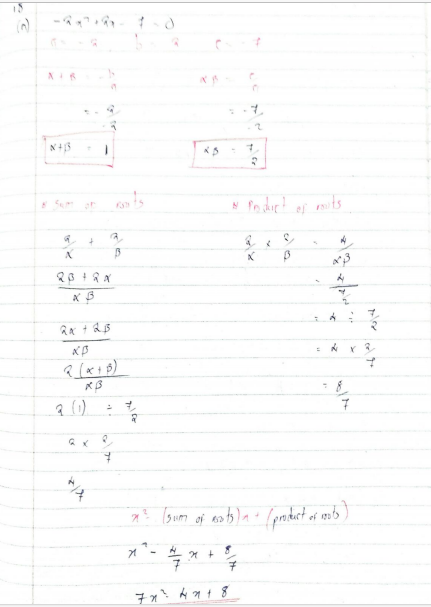 18
(a) -2x² + 2x - 7 = 0
a = -2 b = 2 c = -7
α + β = -b/a
= -2/-2
α+β = 1
αβ = c/a
= -7/-2
αβ = 7/2
* Sum of roots
2/α + 2/β
2β + 2α / αβ
2α + 2β / αβ
2(α + β) / αβ
2(1) ÷ 7/2
2 × 2/7
4/7
* Product of roots
2/α × 2/β = 4/αβ
= 4 / 7/2
= 4 ÷ 7/2
= 4 × 2/7
= 8/7
x² - (sum of roots)x + (product of roots)
x² - 4/7 x + 8/7
7x² - 4x + 8